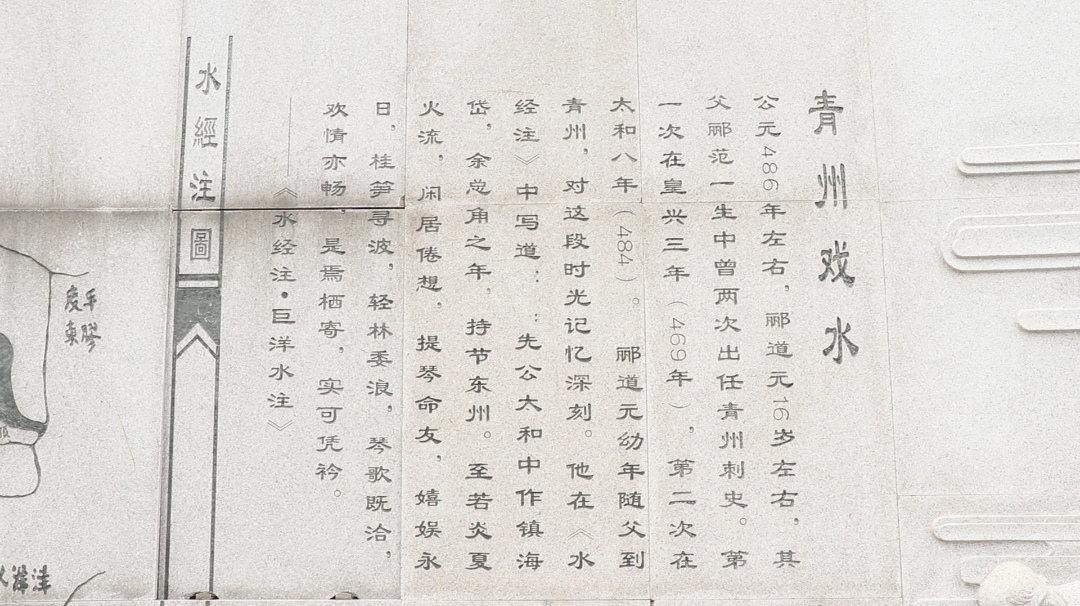 青州戏水
公元486年左右，郦道元16岁左右，其
父郦范一生中曾两次出任青州刺史。第
一次在皇兴三年（469年），第二次在
太和八年（484）。郦道元幼年随父到
青州，对这段时光记忆深刻。他在《水
经注》中写道：“先公太和中作镇海
岱，余总角之年，持节东州。至若炎夏
火流，闲居倦想，提琴命友，嬉娱永
日，桂笋寻波，轻林委浪，琴歌既洽，
欢情亦畅，是焉栖寄，实可凭衿。
——《水经注·巨洋水注》
水經注圖
度平
東膠